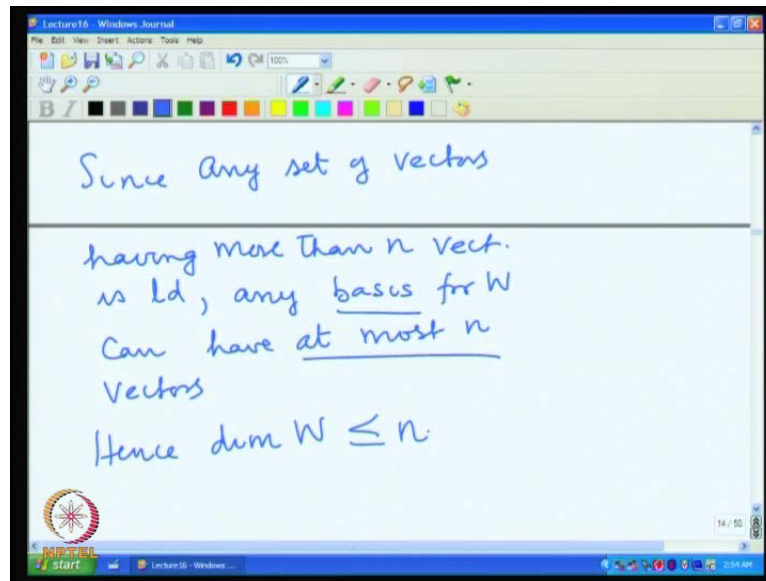 Lecture16 - Windows Journal
File Edit View Insert Actions Tools Help
100%
B I
Since any set of vectors
having more than n vect.
is ld, any basis for W
can have at most n
vectors
Hence dim W ≤ n.
14 / 50
NPTEL
start Lecture16 - Windows ... 2:54 AM